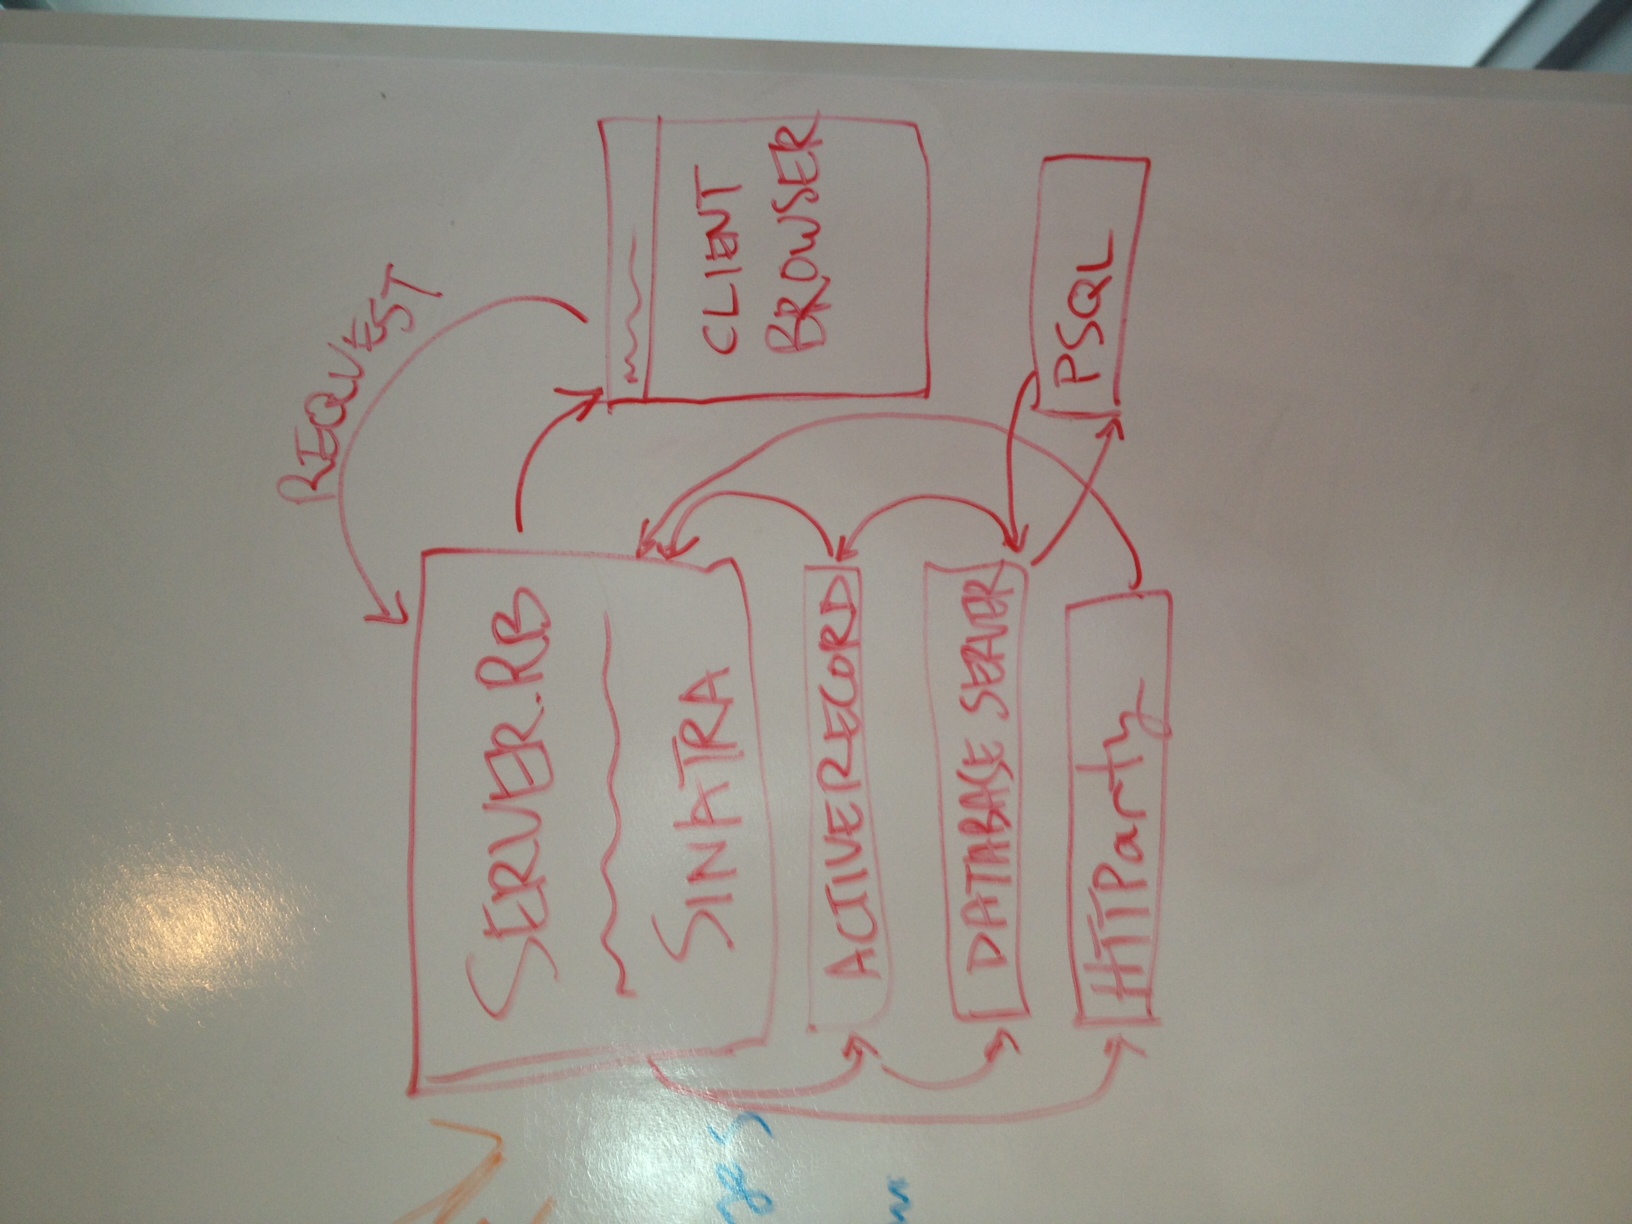 REQUEST
SERVER.RB
SINATRA
CLIENT
BROWSER
ACTIVERECORD
DATABASE SERVER
PSQL
HTTParty